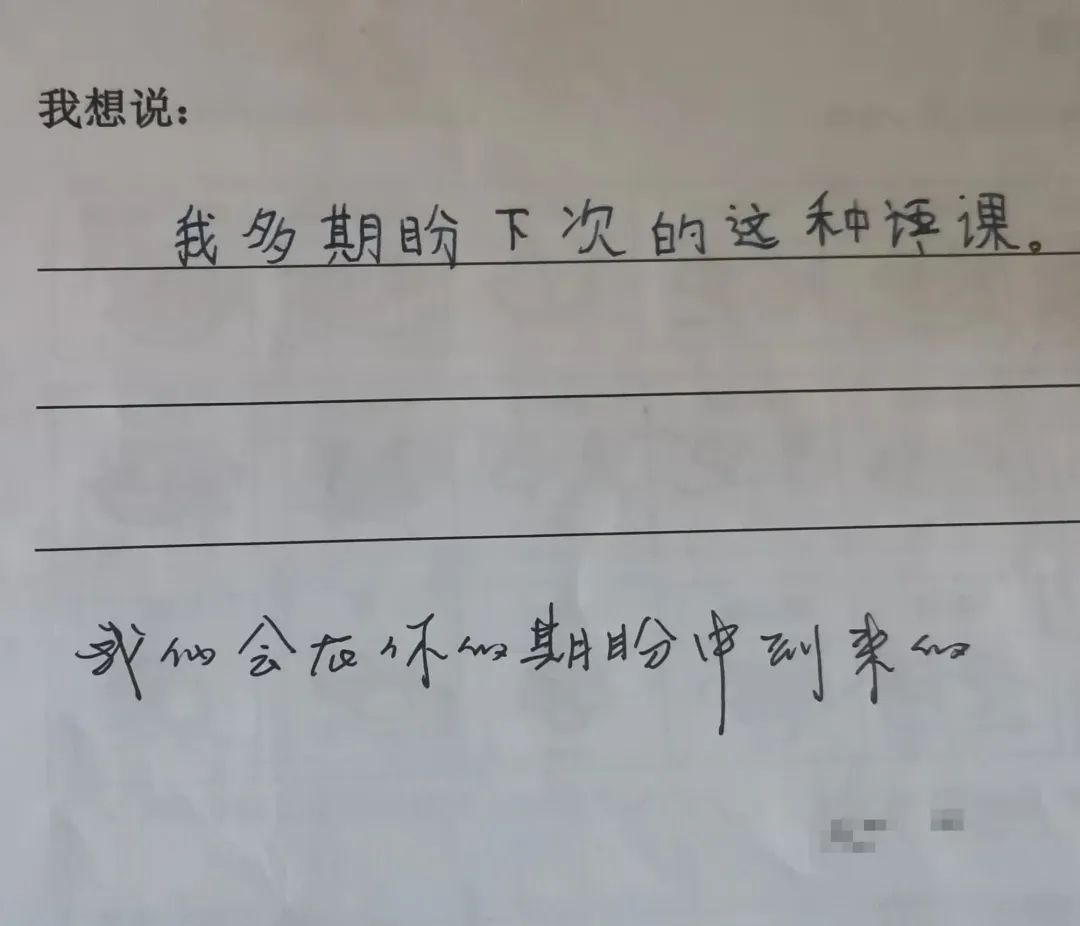 我想说：
我多期盼下次的这种语课。
我们会在你的期盼中到来的